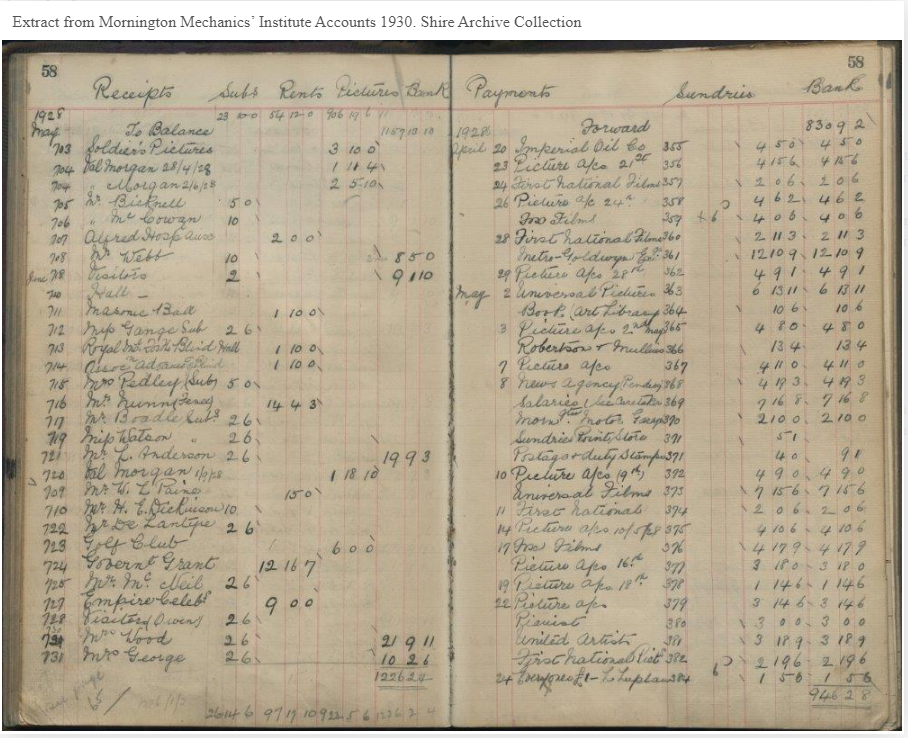 Extract from Mornington Mechanics’ Institute Accounts 1930. Shire Archive Collection
58
Receipts Subs Rents Pictures Bank
1928 23 12 0 54 12 0 906 19 6
May To Balance 1157 13 10
703 Soldiers Pictures 3 10 0
704 Val Morgan 28/4/28 1 11 4
704 " Morgan 2/6/28 2 5 10
705 Mr Bicknell 5 0
706 " Mc Cowan 10
707 Alfred Hosp Aux 2 0 0
708 Mr Webb 10 8 5 0
June 718 Visitors 2 9 11 0
710 Hall -
711 Masonic Ball 1 10 0
712 Miss Gange Sub 2 6
713 Royal Blind Hall 1 10 0
714 Assoc 1 10 0
715 Mrs Pedley (Sub) 5 0
716 Mr Nunn 14 4 3
717 Mr Boadle Subs 2 6
719 Miss Watson " 2 6
721 Mr L. Anderson 2 6 19 9 3
720 Val Morgan 1 18 10
709 Mr W. L. Paine 15 0
710 Mr H. E. Dickinson 10
722 Mr De Lantype 2 6
723 Golf Club 6 0 0
724 Governt Grant 12 16 7
725 Mr Mc Neil 2 6
727 Empire Celebs 9 0 0
728 Visitors (Owen) 2 6
730 Mrs Wood 2 6 21 9 11
731 Mrs George 2 6 10 2 6
1226 2 4
26 14 6 97 17 10 922 5 6 1226 2 4
58
Payments Sundries Bank
1928 Forward 830 9 2
April 20 Imperial Oil Co 355 4 5 0 4 5 0
23 Picture a/cs 21st 356 4 15 6 4 15 6
24 First National Films 357 2 0 6 2 0 6
26 Picture a/c 24th 358 4 6 2 4 6 2
Fox Films 359 +6 4 0 6 4 0 6
28 First National Films 360 2 11 3 2 11 3
Metro-Goldwyn 361 12 10 9 12 10 9
29 Picture a/cs 28th 362 4 9 1 4 9 1
May 2 Universal Pictures 363 6 13 11 6 13 11
Book (Art Library) 364 10 6 10 6
3 Picture a/cs 2nd May 365 4 8 0 4 8 0
Robertson & Mullens 366 13 4 13 4
7 Picture a/cs 367 4 11 0 4 11 0
8 News Agency 368 4 18 3 4 18 3
Salaries 369 7 16 8 7 16 8
Morn Motor Garage 370 2 10 0 2 10 0
Sundries Paints, Store 371 5 1
Postage & duty Stamps 371 4 0 9 1
10 Picture a/cs (9th) 372 4 9 0 4 9 0
Universal Films 373 7 15 6 7 15 6
11 First National 374 2 0 6 2 0 6
14 Picture a/cs 10/5/28 375 4 10 6 4 10 6
17 Fox Films 376 4 17 9 4 17 9
Picture a/cs 16th 377 3 18 0 3 18 0
19 Picture a/cs 18th 378 1 14 6 1 14 6
22 Picture a/cs 379 3 14 6 3 14 6
Pianist 380 3 0 0 3 0 0
United Artists 381 3 18 9 3 18 9
First National Pict 382 2 19 6 2 19 6
24 384 1 5 0 1 5 6
946 2 8